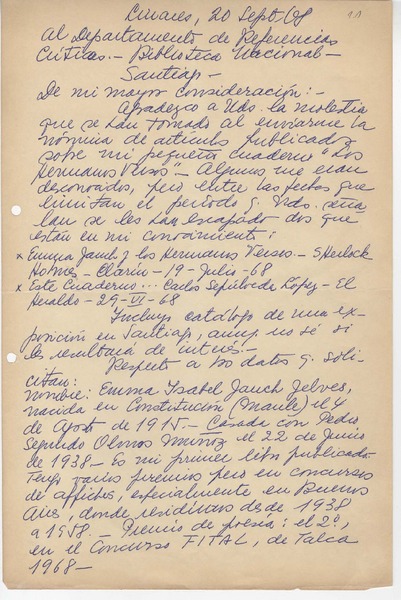 Linares, 20 Sept/68
11
Al Departamento de Referencias
Críticas.- Biblioteca Nacional-
Santiago-
De mi mayor consideración:-
Agradezco a Uds. la molestia
que se han tomado al enviarme la
nómina de artículos publicados
sobre mi pequeño cuaderno "Los
Hermanos Versos"- Algunos me eran
desconocidos, pero entre las fechas que
limitan el período q. Uds. seña-
lan se les han escapado dos que
están en mi conocimiento:
x Emma Jauch y los Hermanos Versos.- Sherlock
Holmes - Clarín - 19 - Julio - 68
x Este Cuaderno... Carlos Sepúlveda López - El
Heraldo - 29 - VI - 68
Incluyo catálogo de una ex-
posición en Santiago, aunq. no sé si
les resultará de interés.-
Respecto a los datos q. soli-
citan:
Nombre: Emma Isabel Jauch Jelves,
nacida en Constitución (Maule) el 4
de Agosto de 1915.- Casada con Pedro
Segundo Olmos Muñoz el 22 de Junio
de 1938 - Es mi primer libro publicado.
Tengo varios premios pero en concursos
de affiches, especialmente en Buenos
Aires, donde residimos desde 1938
a 1958.- Premio de poesía: el 2º,
en el Concurso FITAL, de Talca
1968-